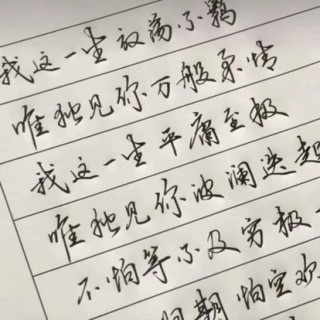 我这一生放荡不羁
唯独见你万般柔情
我这一生平庸至极
唯独见你波澜迭起
不怕等不及穷极一
期怕空欢